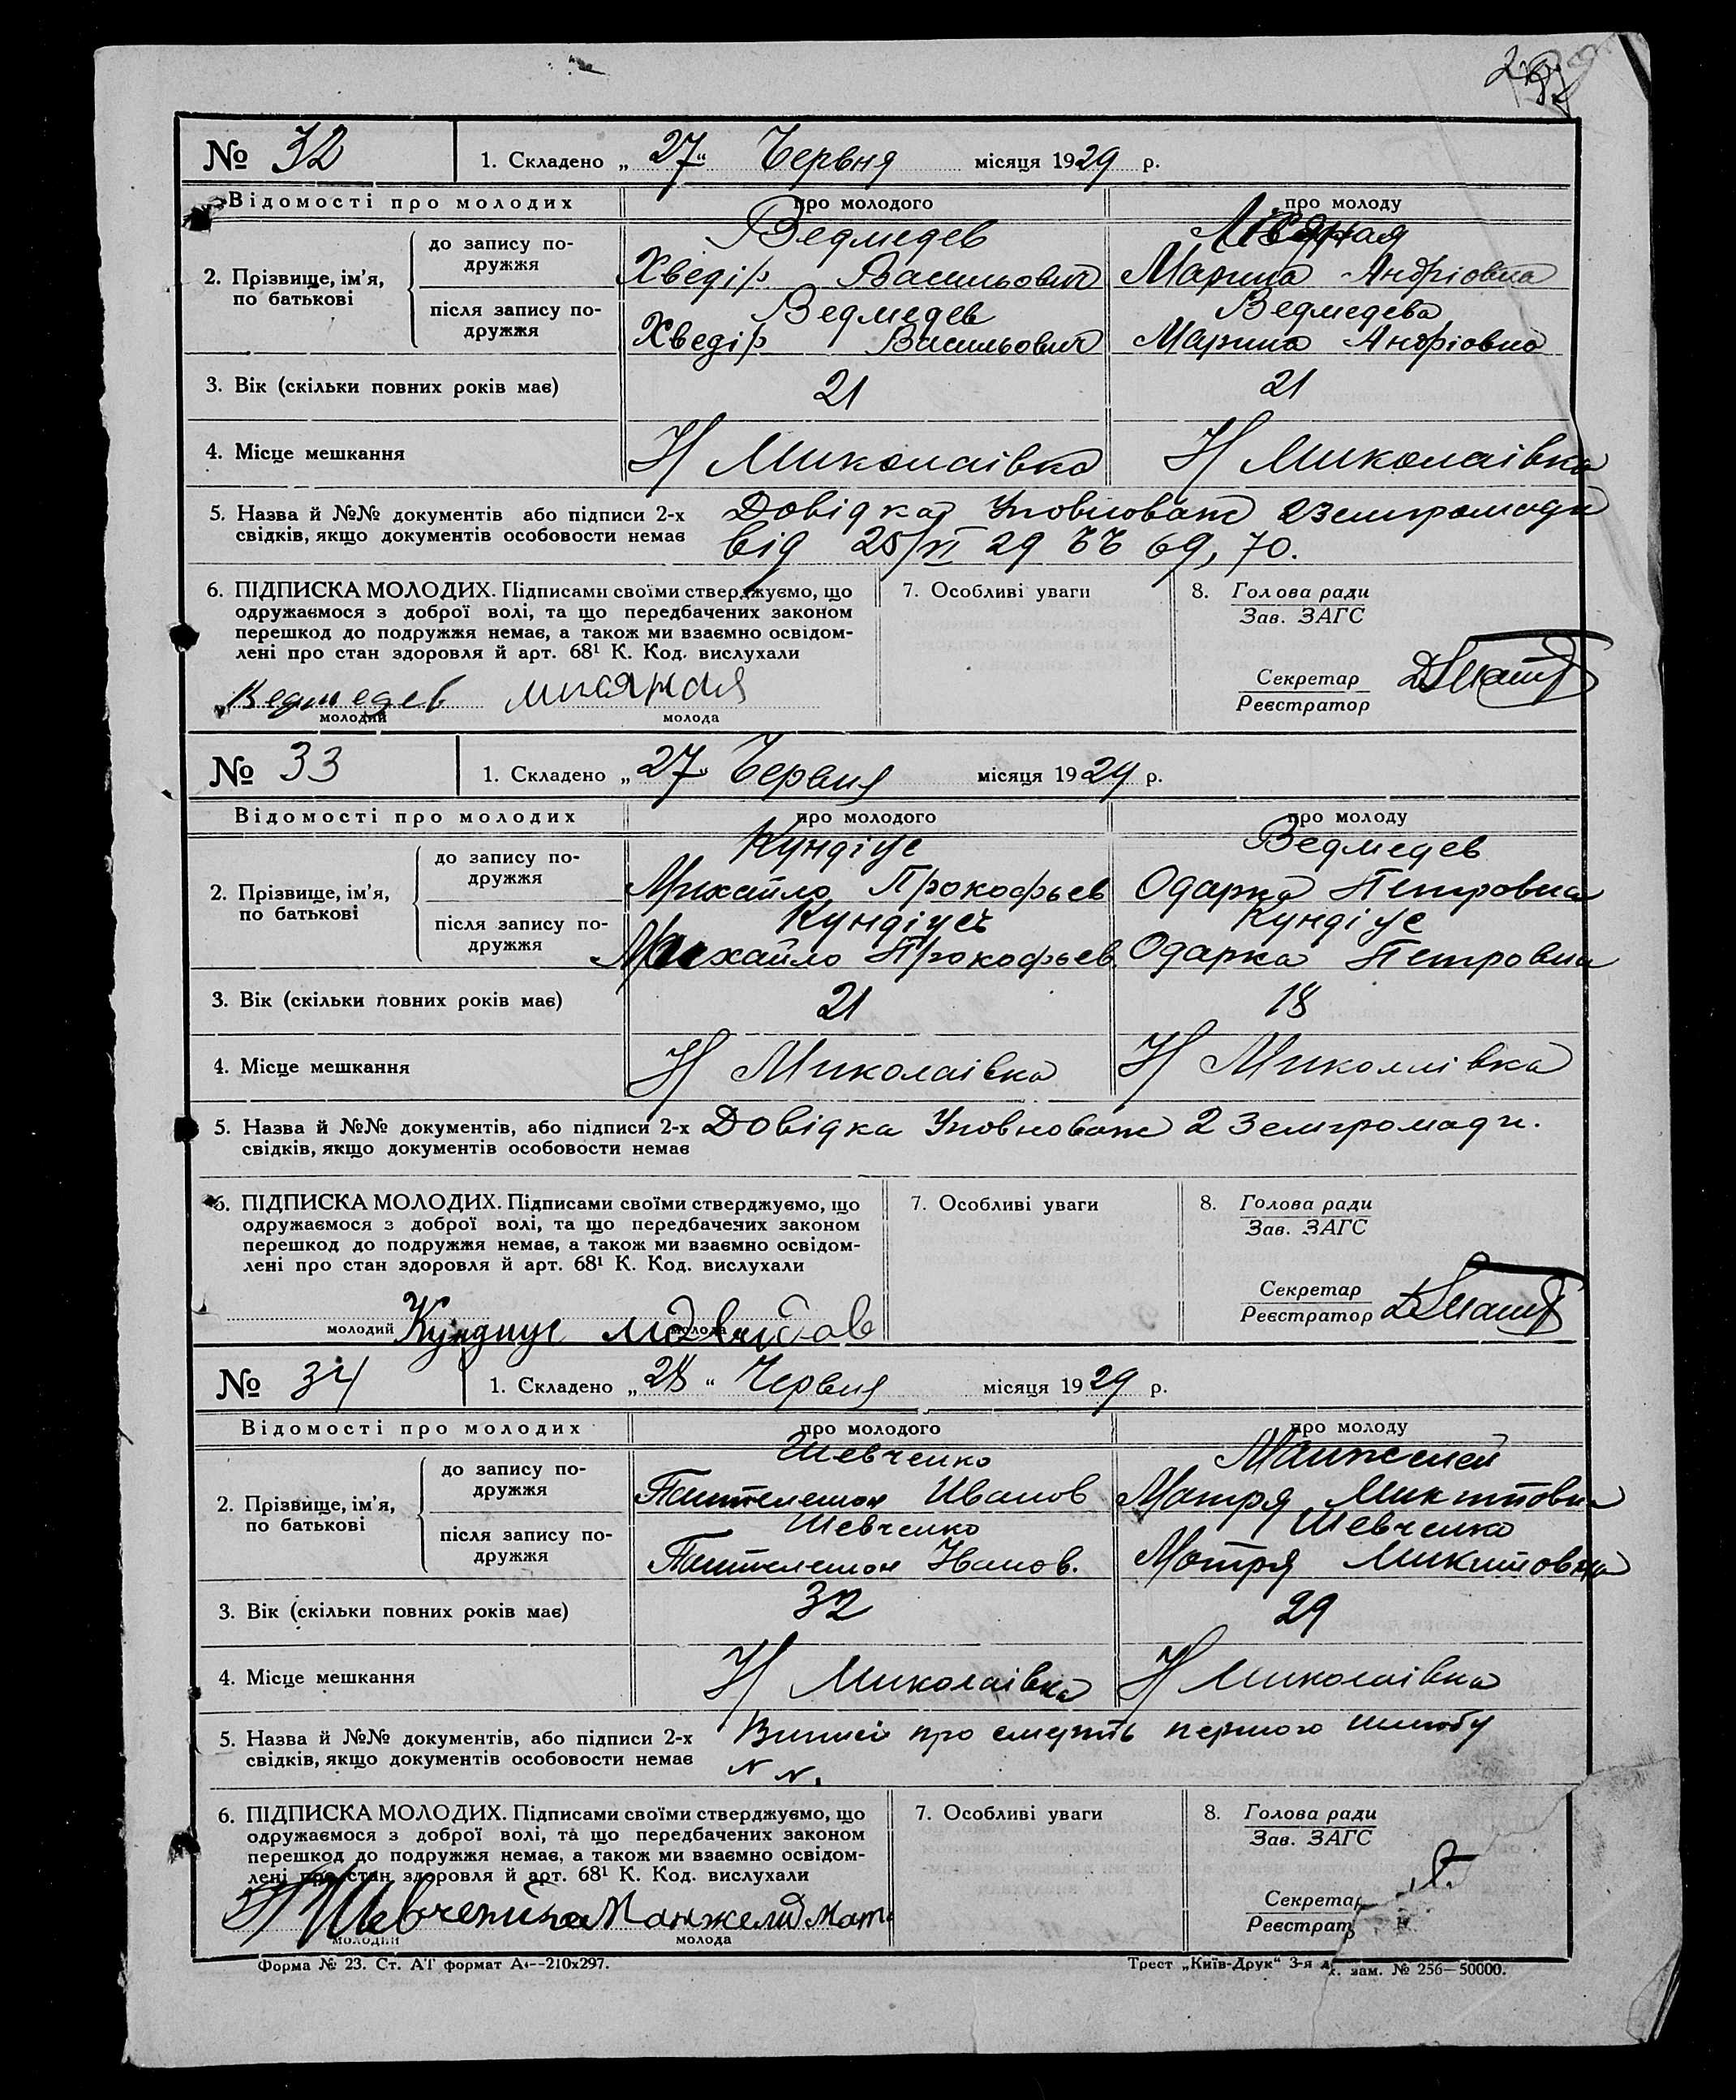 № 32 1. Складено „ 27 “ Червня місяця 1929 р.
Відомості про молодих про молодого про молоду
2. Прізвище, ім'я, по батькові
до запису по-
дружжя
Ведмедев
Хведір Васильович Марина Андріовна
після запису по-
дружжя
Ведмедев Ведмедева
Хведір Васильович Марина Андріовна
3. Вік (скільки повних років має) 21 21
4. Місце мешкання Н Миколаівка Н Миколаівка
5. Назва й №№ документів або підписи 2-х
свідків, якщо документів особовости немає
Довідка Уповноваж 2 земгромади
від 25/VI 29 69, 70.
6. ПІДПИСКА МОЛОДИХ. Підписами своїми стверджуємо, що
одружаємося з доброї волі, та що передбачених законом
перешкод до подружжя немає, а також ми взаємно освідом-
лені про стан здоровля й арт. 68¹ К. Код. вислухали
Ведмедев
молодий молода
7. Особливі уваги
8. Голова ради
Зав. ЗАГС
Секретар
Реєстратор
№ 33 1. Складено „ 27 “ Червня місяця 1929 р.
Відомості про молодих про молодого про молоду
2. Прізвище, ім'я, по батькові
до запису по-
дружжя
Кундіус Ведмедев
Михайло Прокофьев Одарка Петровна
після запису по-
дружжя
Кундіус Кундіус
Михайло Прокофьев. Одарка Петровна
3. Вік (скільки повних років має) 21 18
4. Місце мешкання Н Миколаівка Н Миколаівка
5. Назва й №№ документів, або підписи 2-х
свідків, якщо документів особовости немає
Довідка Уповноваж 2 Земгромади.
6. ПІДПИСКА МОЛОДИХ. Підписами своїми стверджуємо, що
одружаємося з доброї волі, та що передбачених законом
перешкод до подружжя немає, а також ми взаємно освідом-
лені про стан здоровля й арт. 68¹ К. Код. вислухали
молодий Кундиус молода
7. Особливі уваги
8. Голова ради
Зав. ЗАГС
Секретар
Реєстратор
№ 34 1. Складено „ 28 “ Червня місяця 1929 р.
Відомості про молодих про молодого про молоду
2. Прізвище, ім'я, по батькові
до запису по-
дружжя
Шевченко Манжелей
Пантелемон Иванов Мотря Микитовна
після запису по-
дружжя
Шевченко Шевченко
Пантелемон Иванов. Мотря Микитовна
3. Вік (скільки повних років має) 32 29
4. Місце мешкання Н Миколаівка Н Миколаівка
5. Назва й №№ документів, або підписи 2-х
свідків, якщо документів особовости немає
Виписі про смерть першого шлюбу
N N.
6. ПІДПИСКА МОЛОДИХ. Підписами своїми стверджуємо, що
одружаємося з доброї волі, та що передбачених законом
перешкод до подружжя немає, а також ми взаємно освідом-
лені про стан здоровля й арт. 68¹ К. Код. вислухали
Манжелей
молодий молода
7. Особливі уваги
8. Голова ради
Зав. ЗАГС
Секретар
Реєстрат
Форма № 23. Ст. АТ формат А4--210х297. Трест „Київ-Друк“ 3-я зам. № 256—50000.